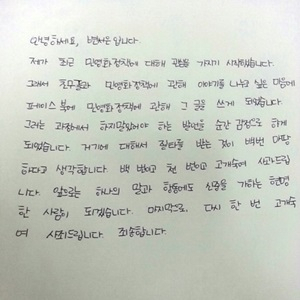 안녕하세요, 변서은입니다.
제가 최근 민영화정책에 대해 관심을 가지기 시작했습니다.
그래서 친구들과 민영화정책에 관해 이야기를 나누고 싶은 마음에
페이스북에 민영화정책에 관해 그 글을 쓰게 되었습니다.
그러는 과정에서 하지말았어야 하는 발언을 순간 감정으로 하게
되었습니다. 거기에 대해서 질타를 받는 것이 백번 마땅
하다고 생각합니다. 백 번이고 천 번이고 고개숙여 사과드립
니다. 앞으로는 하나의 말과 행동에도 신중을 기하는 현명
한 사람이 되겠습니다. 마지막으로, 다시 한 번 고개숙
여 사죄드립니다. 죄송합니다.